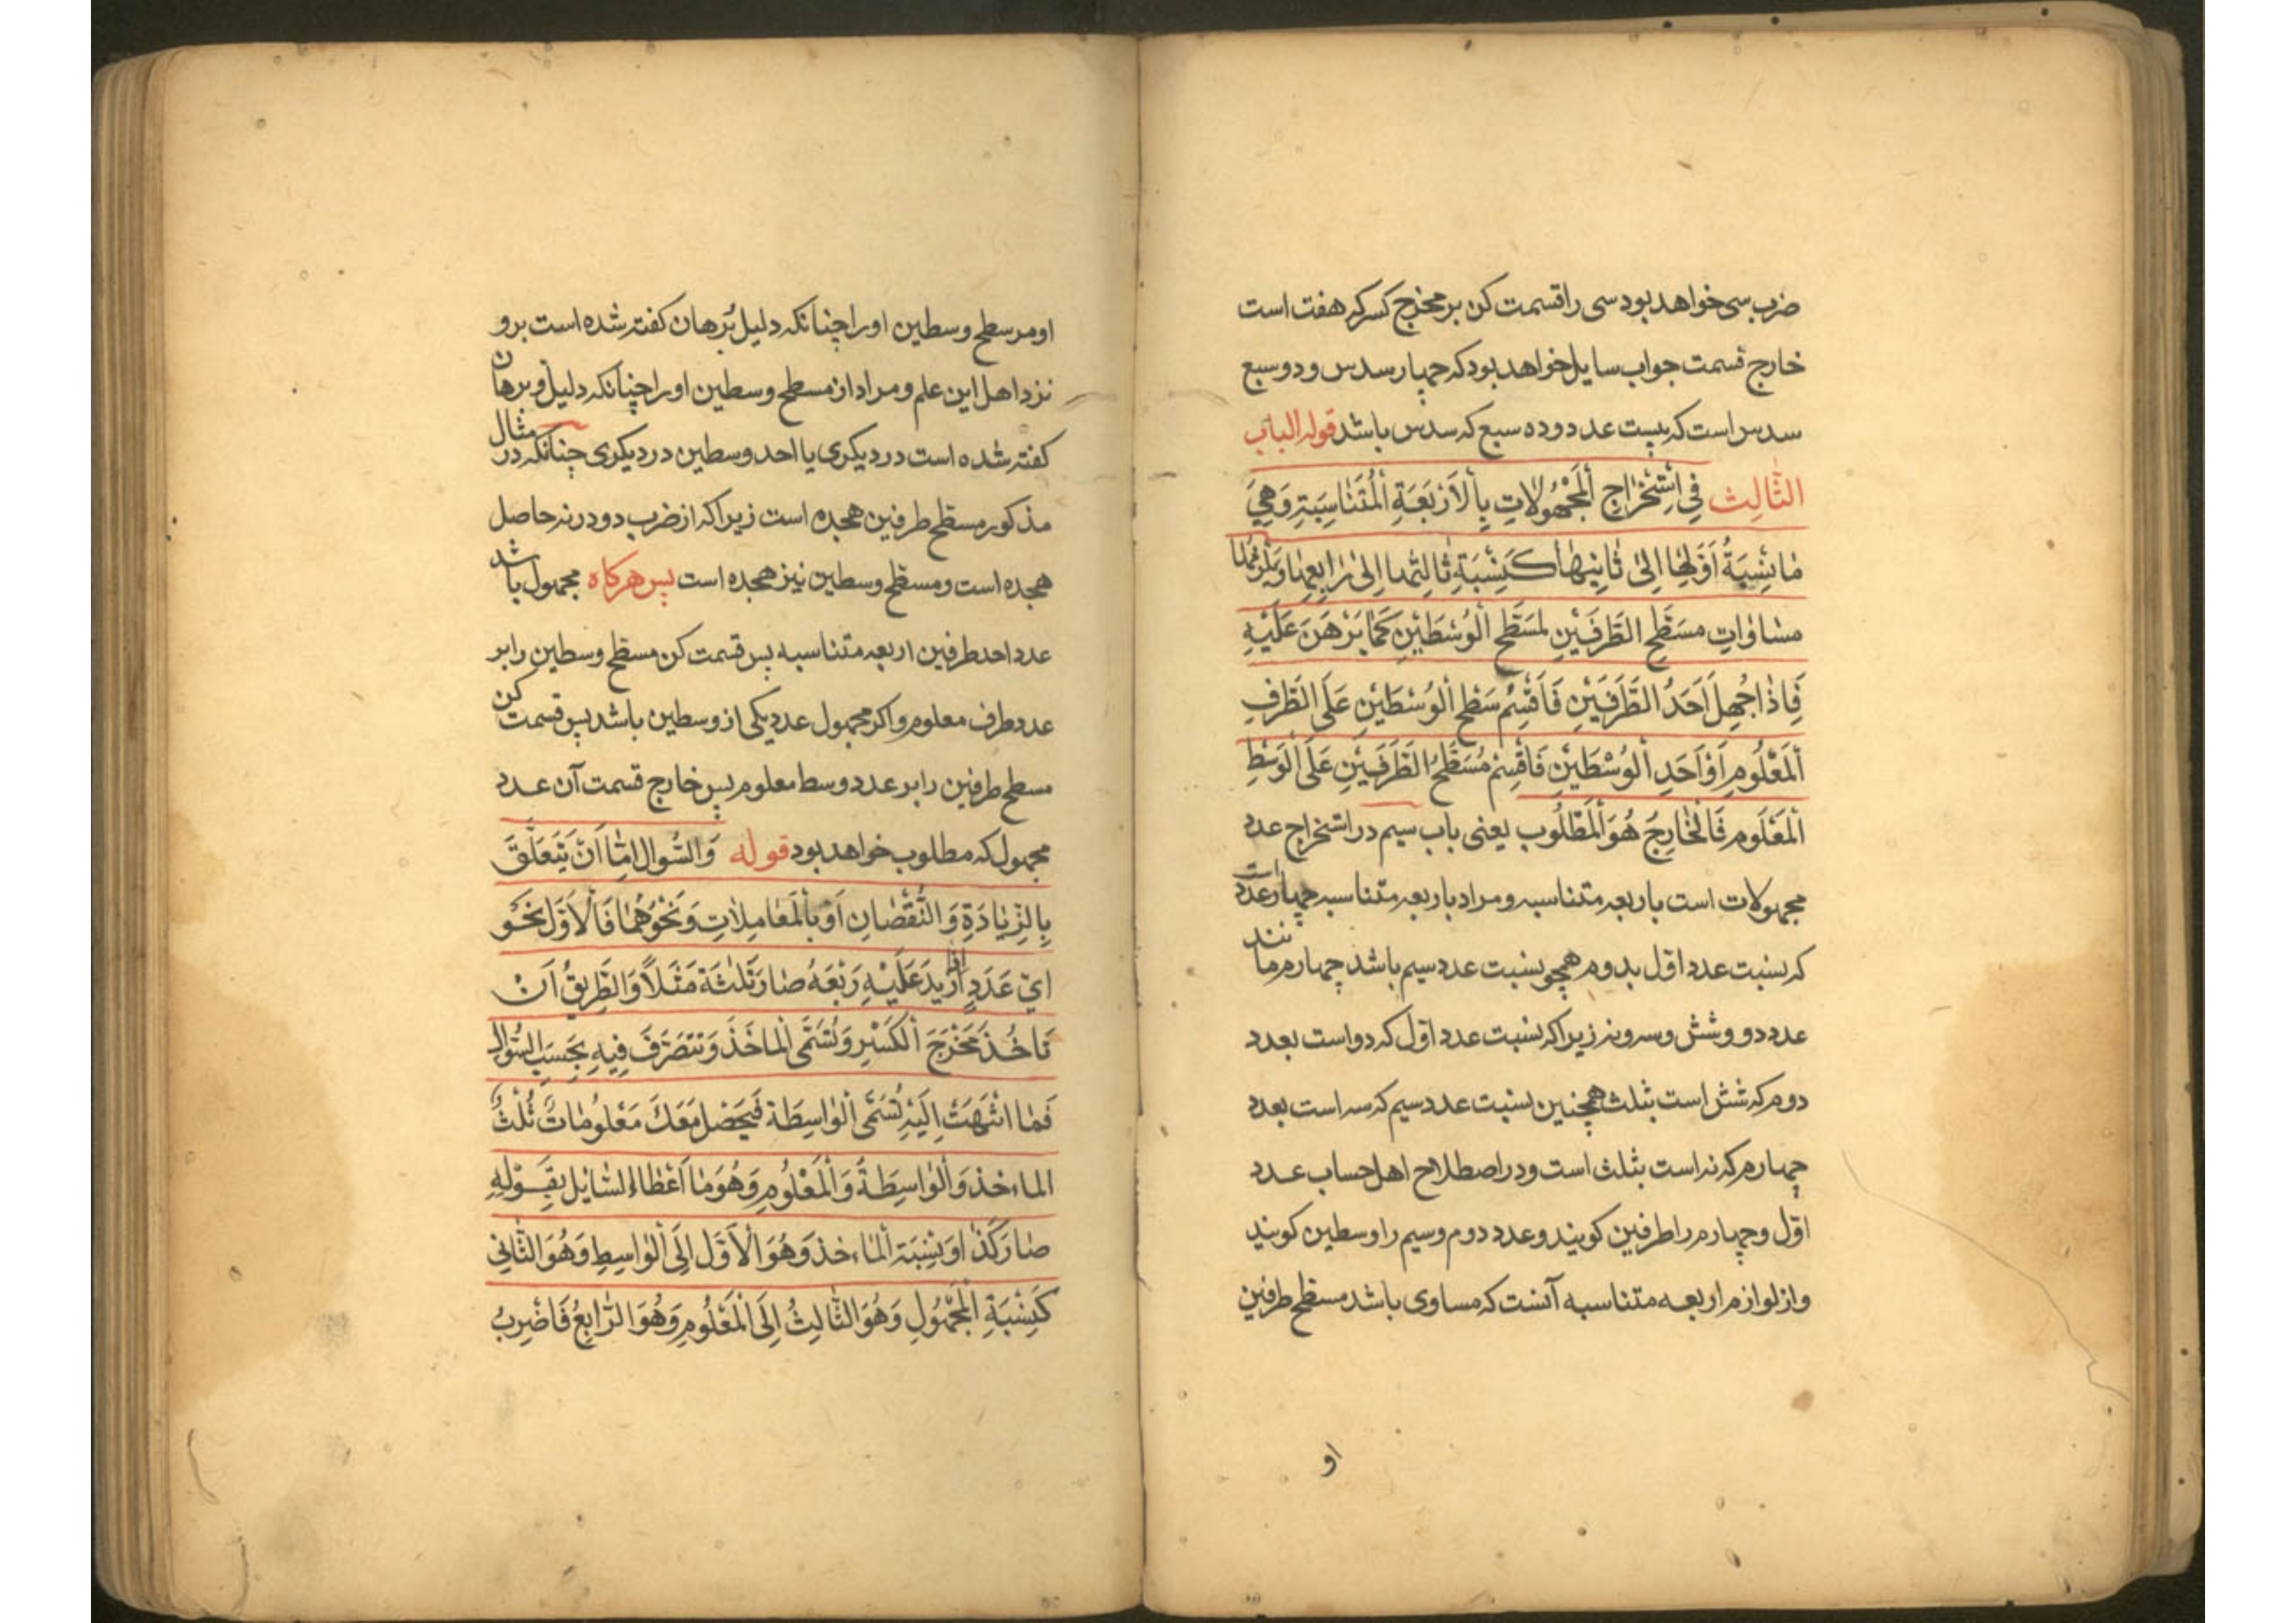 ضرب سی خواهد بود سی را قسمت کن بر مخرج کسر که هفت است
خارج قسمت جواب سایل خواهد بود که چهار سدس و دو سبع
سدس است که بیست عدد و ده سبع که سدس باشد قوله الباب
الثَّالِث فِي اسْتِخْرَاجِ الْمَجْهُولَاتِ بِالْاَرْبَعَةِ الْمُتَنَاسِبَةِ وَهِيَ
مَا نِسْبَةُ اَوَّلِهَا اِلٰى ثَانِيهَا كَنِسْبَةِ ثَالِثِهَا اِلٰى رَابِعِهَا وَيَلْزَمُهَا
مساوات مسَطَّحِ الطَّرَفَيْنِ لمسَطَّحِ الْوُسْطَيْنِ كَمَا بَرْهَنَ عَلَيْهِ
فَاِذَا جُهِلَ اَحَدُ الطَّرَفَيْنِ فَاَقْسِمْ سَطْحِ الْوُسْطَيْنِ عَلَى الطَّرَفِ
الْمَعْلُومِ اَوْ اَحَدِ الْوُسْطَيْنِ فَاقْسِمْ مُسَطَّحُ الطَّرَفَيْنِ عَلَى الْوَسْطِ
الْمَعْلُومِ فَالْخَارِجُ هُوَ الْمَطْلُوب یعنی باب سیم در استخراج عدد
مجهولات است باربعه متناسبه و مراد باربعه متناسبه چهار عدد است
که نسبت عدد اوّل بدوم همچو نسبت عدد سیم باشد چهارم مانند
عدد دو و شش و سه و نه زیرا که نسبت عدد اوّل که دو است بعدد
دوم که شش است بثلث همچنین نسبت عدد سیم که سه است بعدد
چهارم که نه است بثلث است و در اصطلاح اهل حساب عدد
اوّل و چهارم را طرفین کویند و عدد دوم و سیم را وسطین کویند
و از لوازم اربعه متناسبه آنست که مساوی باشد مسطح طرفین
او
او مر سطح وسطین او را چنانکه دلیل بُرهان کفته شده است برو
نزد اهل این علم و مراد از مسطح وسطین او را چنانکه دلیل و برهان
کفته شده است در دیکری یا احد وسطین در دیکری چنانکه در مثال
مذکور مسطح طرفین هجده است زیرا که از ضرب دو در نه حاصل
هجده است و مسطح وسطین نیز هجده است پس هرکاه مجهول باشد
عدد احد طرفین اربعه متناسبه پس قسمت کن مسطح وسطین را بر
عدد طرف معلوم و اکر مجهول عدد یکی از وسطین باشد پس قسمت کن
مسطح طرفین را بر عدد وسط معلوم پس خارج قسمت آن عدد
مجهول که مطلوب خواهد بود قوله وَالسُّوال اِمّا اَنْ يَتَعَلَّقَ
بِالزِّيَادَةِ وَالنُّقْصَانِ اَوْ بِالْمَعَامِلَاتِ وَنَحْوُهُمَا فَالْاَوَّل نَحْو
ايّ عَدَدٍ اِذَا زِيدَ عَلَيْهِ رَبْعَهُ صَارَ ثَلٰثَةَ مَثَلاً وَالطَّرِيقُ اَنْ
تَاخُذَ مَخْرَجَ الْكَسْرِ وَتُسَمَّى الْمَاخَذَ وَتَتَصَرَّفَ فِيهِ بِحَسَبِ السُّوال
فَمَا انْتَهَتْ اِلَيْهِ تُسَمَّى الْوَاسِطَة فَيَحْصُل مَعَكَ مَعْلُومَاتٌ ثَلٰثٌ
الماخذ وَالْوَاسِطَةُ وَالْمَعْلُومِ وَهُوَ مَا اَعْطَاءُ السَّايِلِ بِقَوْلِهِ
صَارَ كَذَا وَنِسْبَة الْمَاخذ وَهُوَ الْاَوَّلُ اِلَى الْوَاسِطِ وَهُوَ الثَّانِي
كَنِسْبَةِ الْمَجْهُولِ وَهُوَ الثَّالِثُ اِلَى الْمَعْلُومِ وَهُوَ الرَّابِعُ فَاضْرِبْ